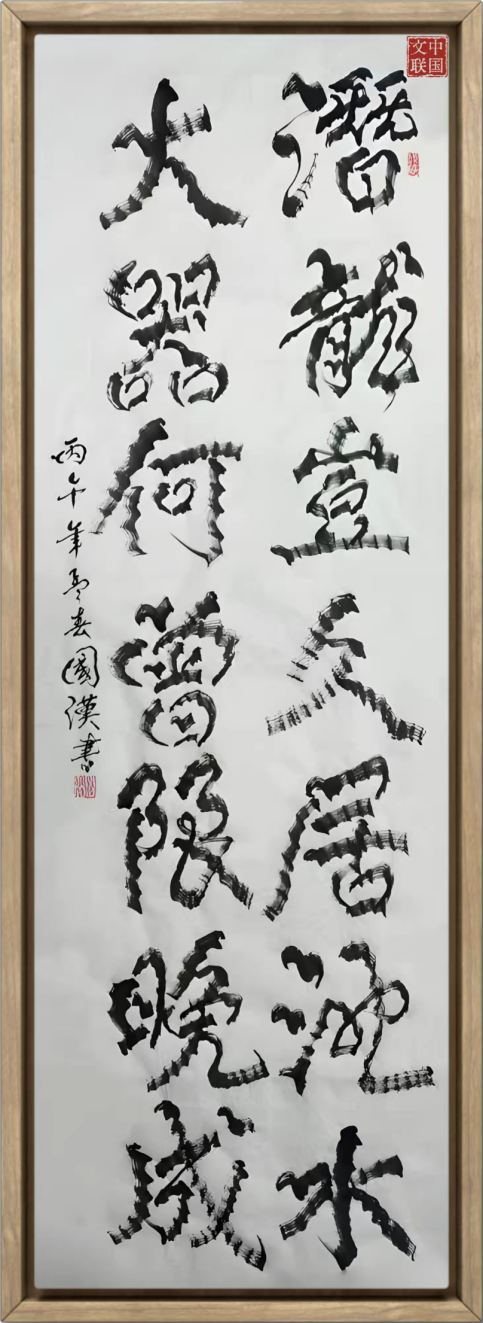 中国文联
潛龍豈久居池水
大器何曾限晚成
丙午年孟春國漢書